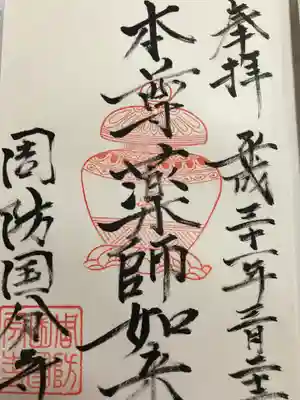 奉拝
平成三十一年三月二十二
本尊薬師如来
周防国分寺